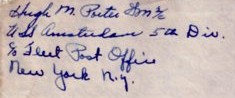 Hugh M. Porter F2/c
U.S.S. Amsterdam 5th Div.
c/o Fleet Post Office
New York N.Y.